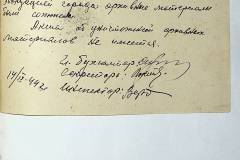 города архивные материалы
были сожжены.
Акта об уничтожении архивных
материалов не имеется.
Гл. бухгалтер
Секретарь:
14/IX-442 Инспектор: